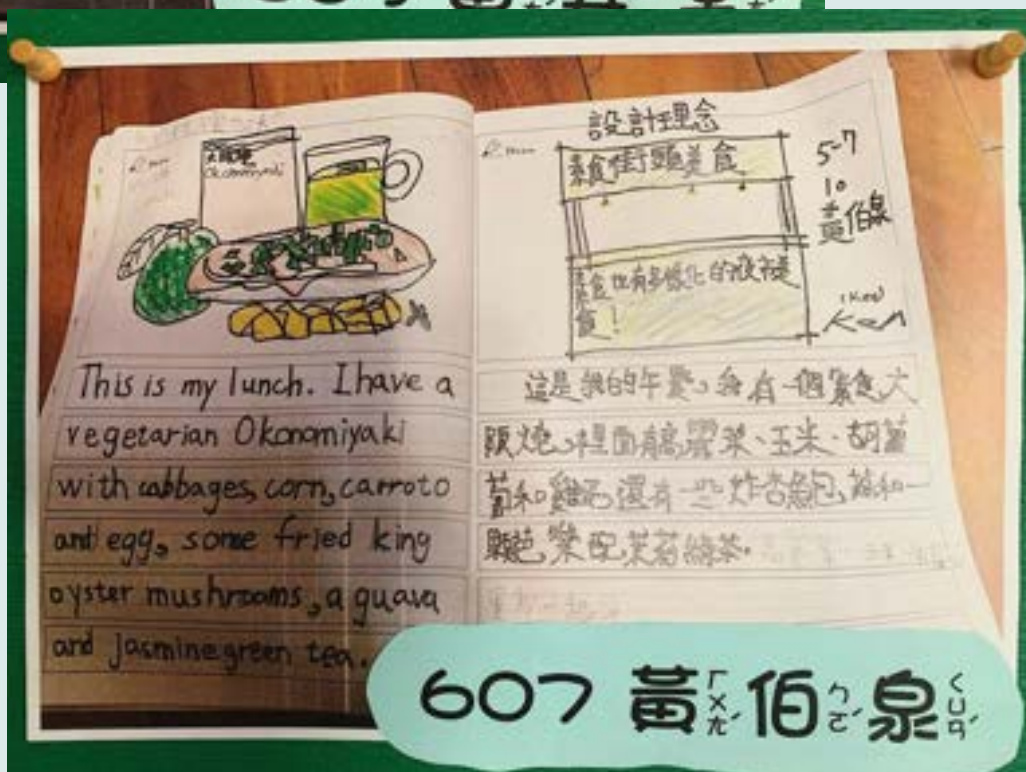 大阪燒
Okonomiyaki
This is my lunch. I have a
vegetarian Okonomiyaki
with cabbages, corn, carroto
and egg, some fried king
oyster mushrooms, a guava
and jasmine green tea.
設計理念
素食街頭美食
素食也有多樣化的
食!
5-7
10
黃伯泉
(Ken)
Ken
這是我的午餐,我有一個素食大
阪燒,裡面有高麗菜、玉米、胡蘿
蔔和雞蛋還有一些炸杏鮑菇和一
顆芭樂配茉莉綠茶.
607 黃ㄏㄨㄤˊ伯ㄅㄛˊ泉ㄑㄩㄢˊ